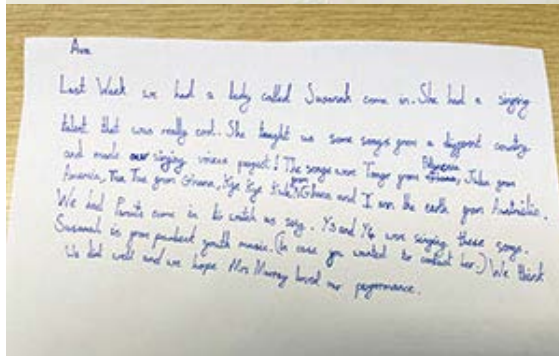 Ava
Last Week we had a lady called Susanah come in. She had a singing
talent that was really cool. She taught us some songs from a different country
and made our singing voices project! The songs were Tongo from Polynesia, Juba from
America, Tue Tue from Ghana, Kye Kye Kule from Ghana and I am the earth from Australia.
We had Parents come in to watch us sing. Y3 and Y6 were singing these songs.
Susanah is from youth music. (In case you wanted to contact her.) We think
We did well and we hope Mrs Murray loved our performance.